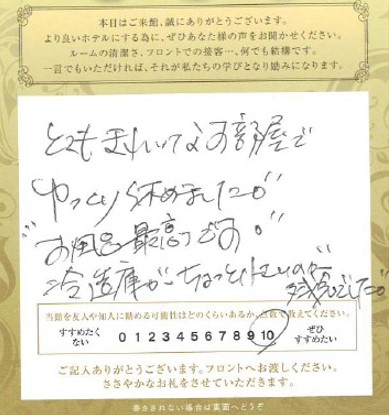 本日はご来館、誠にありがとうございます。
より良いホテルにする為に、ぜひあなた様の声をお聞かせください。
ルームの清潔さ、フロントでの接客…、何でも結構です。
一言でもいただければ、それが私たちの学びとなり励みになります。
とてもきれいなお部屋で
ゆっくり休めました。
お風呂最高です。
冷蔵庫がちょっと
残念でした
当館を友人や知人に勧める可能性はどのくらいあるか、点数で教えてください。
すすめたくない 0 1 2 3 4 5 6 7 8 9 10 ぜひすすめたい
ご記入ありがとうございます。フロントへお渡しください。
ささやかなお礼をさせていただきます。
書ききれない場合は裏面へどうぞ